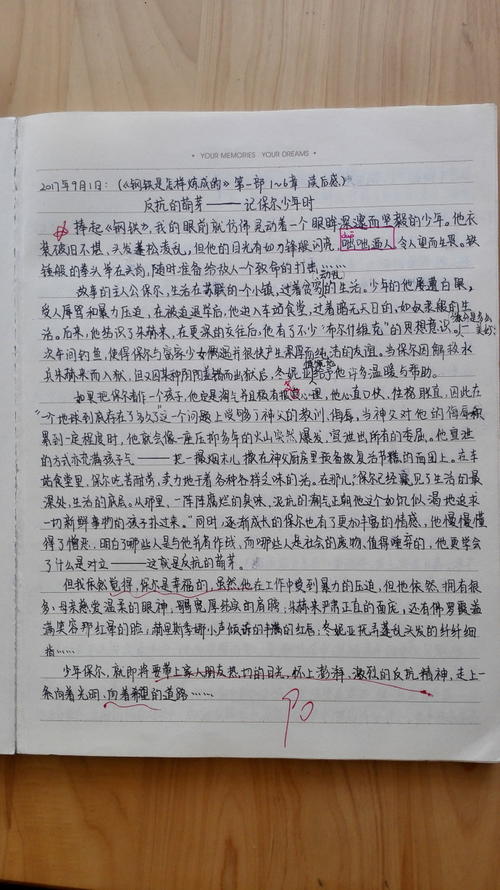 • YOUR MEMORIES YOUR DREAMS •
2017年9月1日:(《钢铁是怎样炼成的》第一部 1~6章 读后感)
反抗的萌芽——记保尔少年时
捧起《钢铁》,我的眼前就仿佛晃动着一个眼眸深邃而坚毅的少年。他衣
衫破旧不堪、头发蓬松凌乱,但他的目光有如刀锋般闪亮,咄咄逼人,令人望而生畏。铁
锤般的拳头举在头前,随时准备给敌人一个致命的打击……
故事的主人公保尔,生活在苏联的一个小镇,过着贫穷动乱的生活。少年的他屡遭白眼,
受人辱骂和暴力压迫,在被迫退学后,他进入车站食堂,过着暗无天日的,如奴隶般的生
活。后来,他结识了朱赫来,在更深的交往后,他有了不少"布尔什维克"的思想意识。
次年间钓鱼,使得保尔与富家少女偶遇并很快产生深厚而纯洁的友谊。当保尔因解救水
兵朱赫来而入狱,但又因某种阴阳差错而出狱后,冬妮亚给予他许多温暖与帮助。
如果把保尔看作一个孩子,他定是淘气并且极有报复心理,他心直口快、性格耿直,因此在
"一个地球到底存在了多久"这个问题上受够了神父的教训、侮辱,当神父对他的侮辱积
累到一定程度时,他就会像一座压抑多年的火山突然爆发,宣泄出所有的委屈。他宣泄
的方式亦充满孩子气——把一撮烟末儿撒在神父厨房里预备做复活节糕的面团上。在车
站食堂里,保尔吃苦耐劳,卖力地干着各种各样乏味的活。在那儿,保尔已经窥见了生活的最
深处,生活的底层。从那里,一阵阵腐烂的臭味、泥坑的潮气正朝他这个如饥似渴地追求
一切新鲜事物的孩子扑过来。"同时,逐渐成长的保尔也有了更加丰富的情感,他慢慢懂
得了憎恶,明白了哪些人是与他并肩作战,而哪些人是社会的废物、值得唾弃的,他更学会
了什么是对立——这就是反抗的萌芽。
但我依然觉得,保尔是幸福的,虽然他在工作中受到暴力的压迫,但他依然拥有很
多:母亲慈爱温柔的眼神,哥哥宽厚结实的肩膀,朱赫来严肃正直的面庞,还有佛罗霞溢
满笑容那红晕的脸;小声倾诉的丰满的红唇;冬妮亚托弄蓬乱头发的纤纤细
指……
少年保尔,就即将要带上家人朋友热切的目光,怀上澎湃、激烈的反抗精神,走上一
条向着光明、向着希望的道路……
90